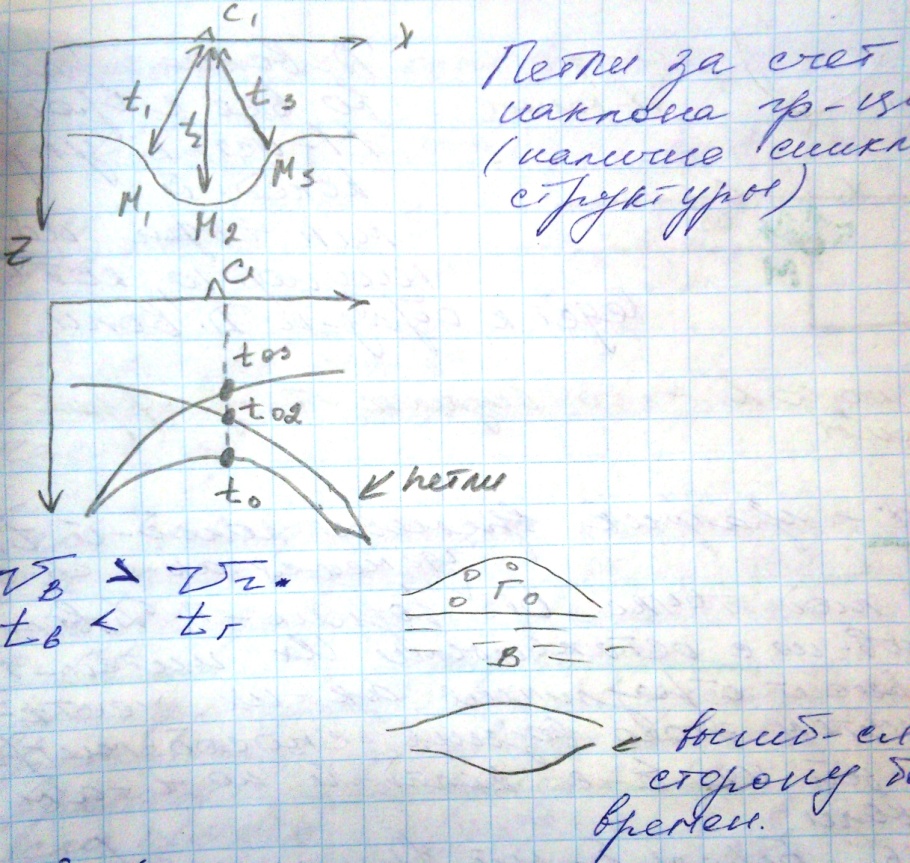 C₁
x
t₁
t₂
t₃
M₁
M₂
M₃
z
Петли за счет
наклона гр-ц
(наличие синкл
структуры)
C₁
t₀₃
t₀₂
t₀
петли
V_в > V_г.
t_в < t_г
Г
В
выгиб-ся
сторону б
времен.